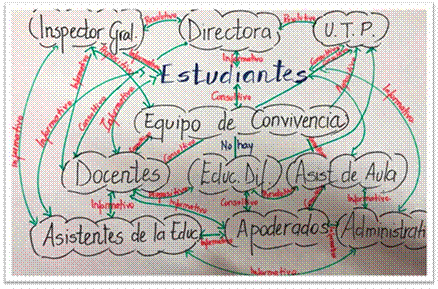 Inspector Gral.
Resolutivo
Directora
Resolutivo
U.T.P.
Informativo
Informativo
Estudiantes
Consultivo
Informativo
Informativo
Informativo
Informativo
Consultivo
Equipo de Convivencia
Consultivo
No hay
Docentes
Educ. Dif
Asist. de Aula
Informativo
Informativo
Consultivo
Resolutivo
Informativo
Asistentes de la Educ
Informativo
Apoderados
Administrati
Informativo